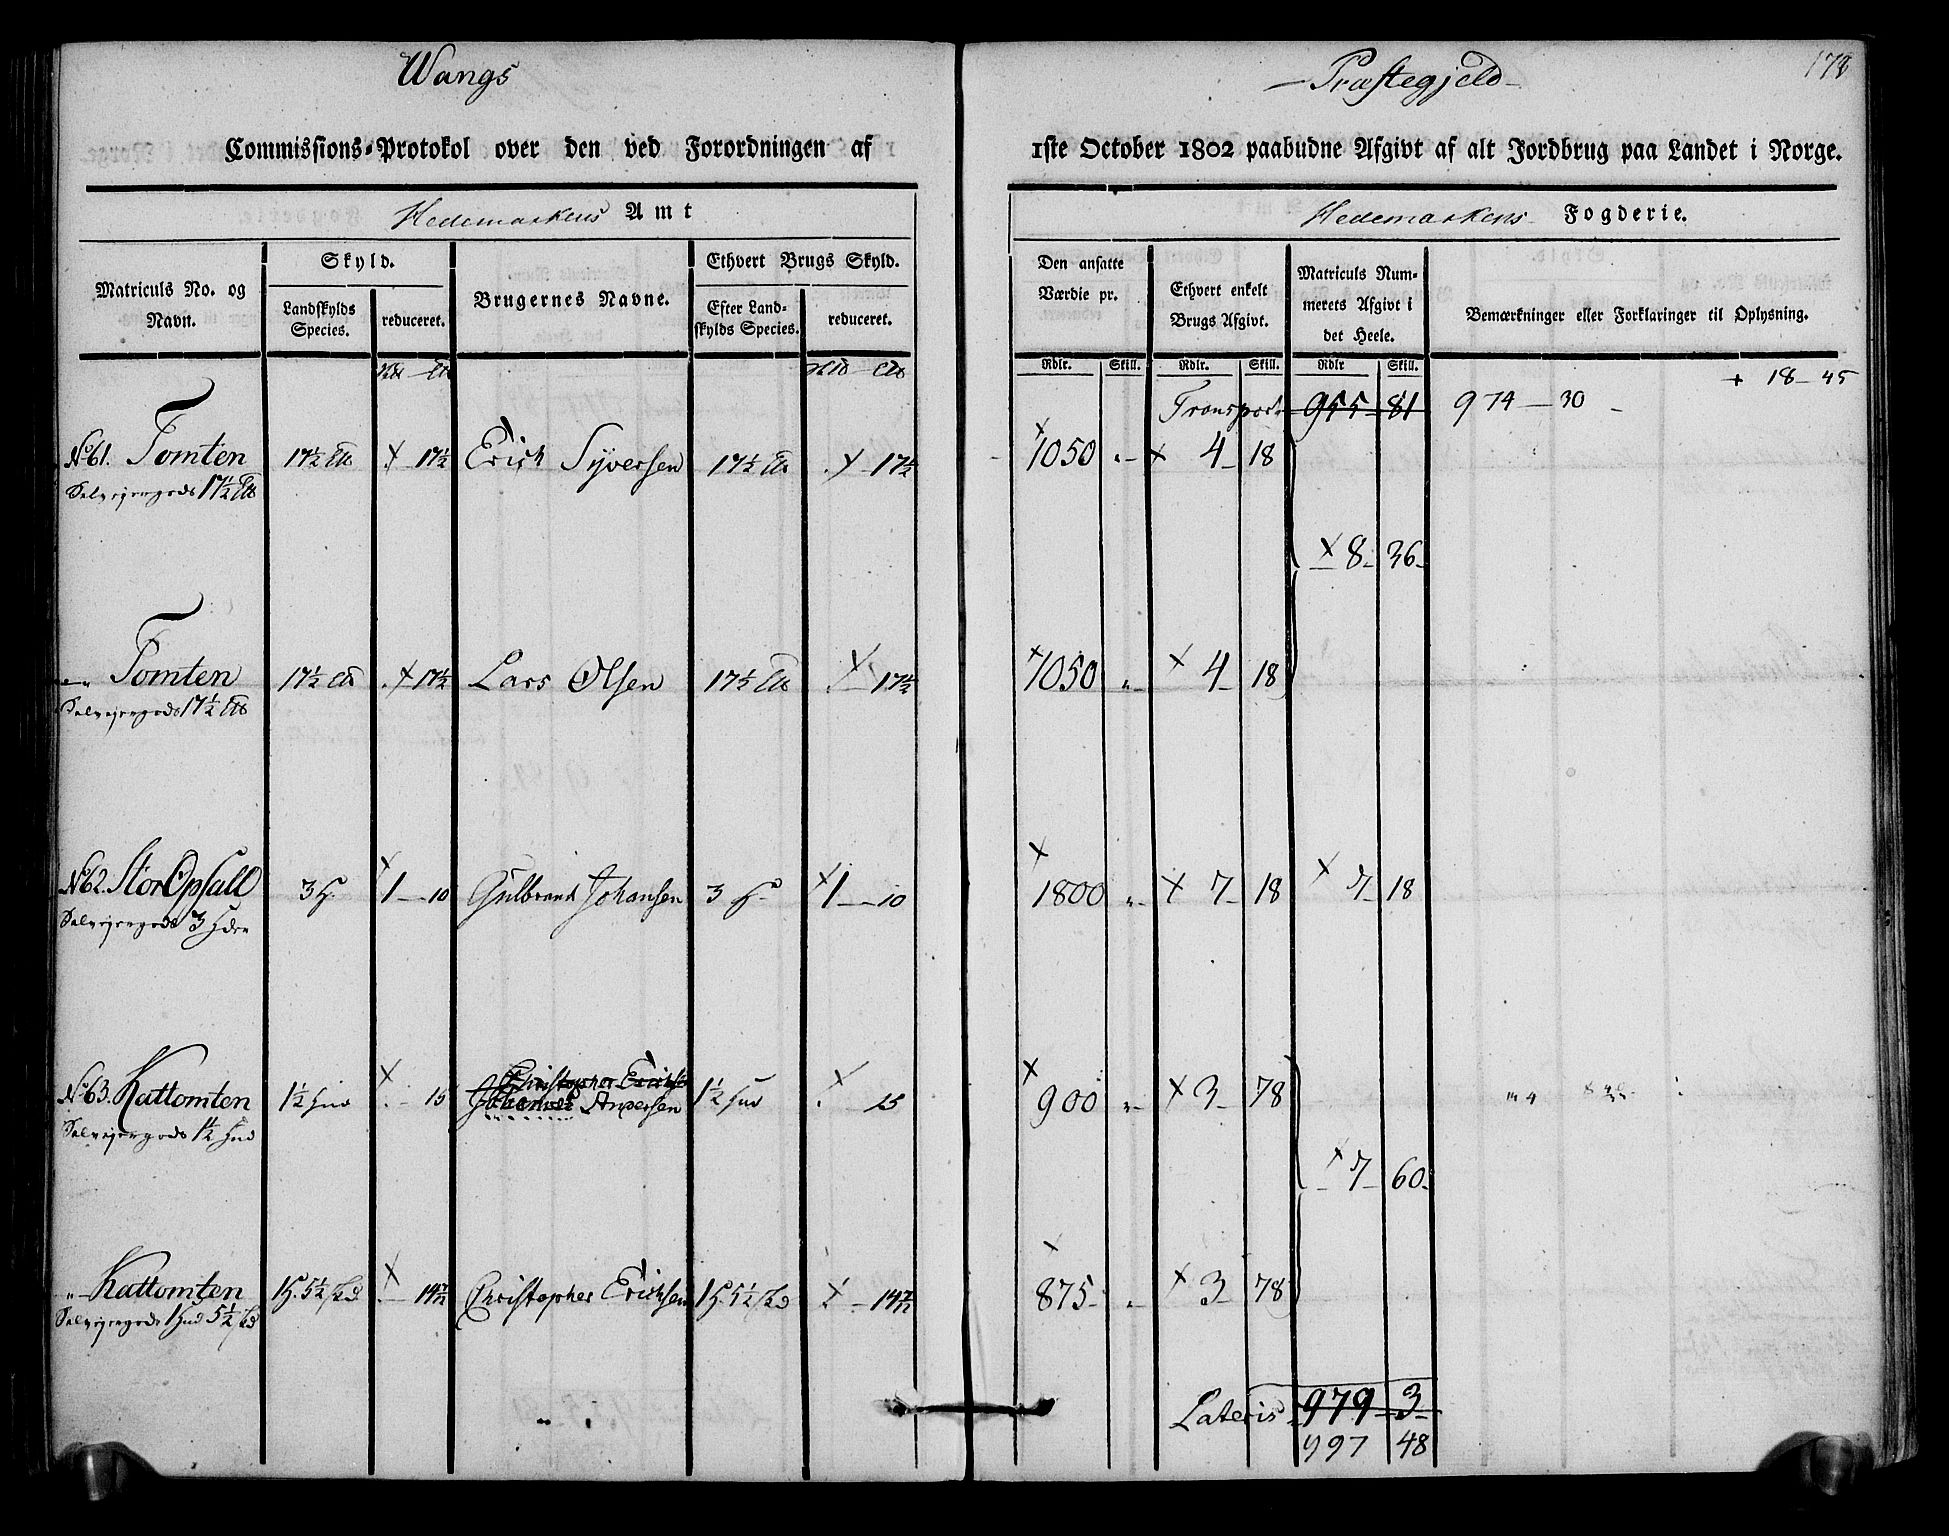 Wangs
Præstegjeld
178
Commissions-Protokol over den ved Forordningen af 1ste October 1802 paabudne Afgivt af alt Jordbrug paa Landet i Norge.
Hedemarkens Amt
Hedemarkens Fogderie.
Matriculs No. og Navn.
Skyld.
Landskylds Species.
reduceret.
Brugernes Navne.
Ethvert Brugs Skyld.
Efter Landskylds Species.
reduceret.
Den ansatte Værdie pr.
Ethvert enkelt Brugs Afgivt.
Matriculs Nummerets Afgivt i det Heele.
Bemærkninger eller Forklaringer til Oplysning.
Rdlr. Skill. Rdlr. Skill. Rdlr Skill.
+ 18 - 45
Transport 955 81 974 - 30
No 61. Tomten 17½ 17½ Erich Syversen 17½ 17½ 1050 4 18
Selveyergods 17½
8 36
Tomten 17½ 17½ Lars Olsen 17½ 17½ 1050 4 18
Selveyergods 17½
No 62. Stor Opsall 3 H 1 - 10 Gulbrand Johansen 3 H 1 - 10 1800 7 18 7 18
Selveyergods 3 Hder
Christopher Erichse
No 63. Kattomten 1½ Hud 15 Johannes Andersen 1½ Hud 15 900 3 78
Selveyergods 1½ Hud
7 60
Kattomten 1 H. 5½ 14 7/12 Christopher Erichsen 1 H. 5½ 14 7/12 875 3 78
Selveyergods 1 Hud 5½
Lateris 979 3
997 48